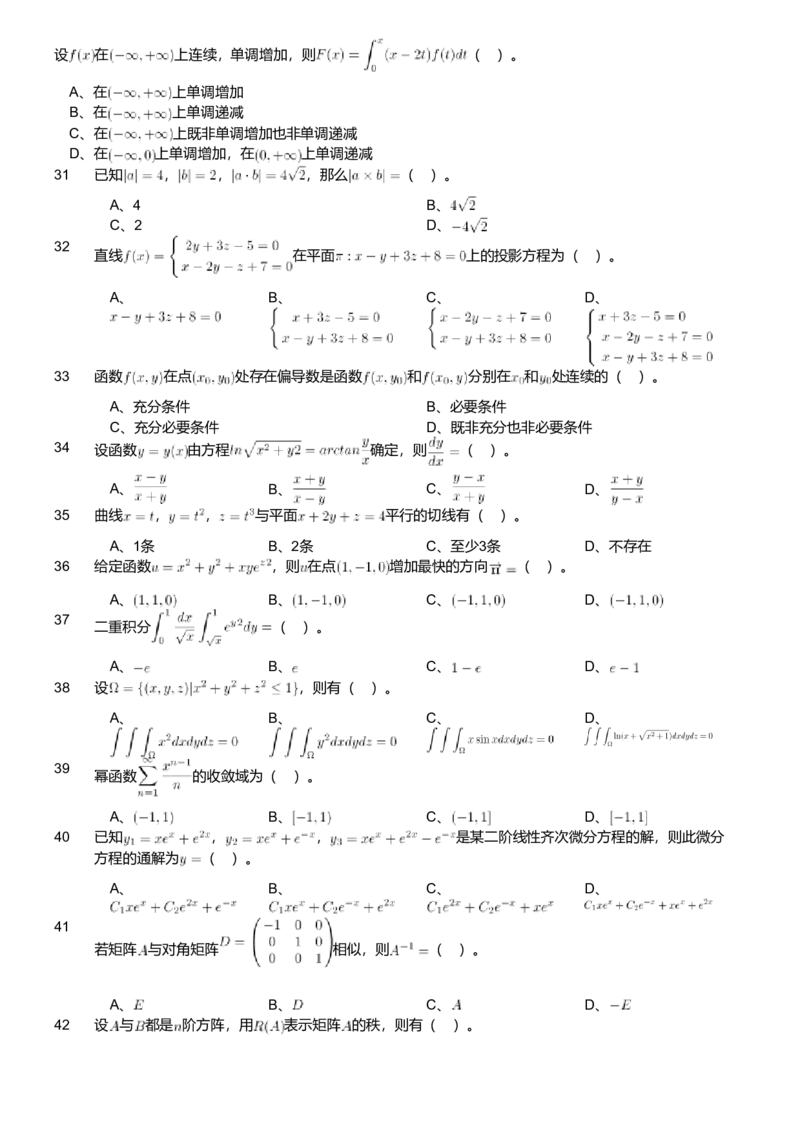 设f(x)在(−∞,+∞)上连续，单调增加，则F(x) = ∫₀ˣ (x − 2t)f(t)dt（ ）。
A、在(−∞,+∞)上单调增加
B、在(−∞,+∞)上单调递减
C、在(−∞,+∞)上既非单调增加也非单调递减
D、在(−∞,0)上单调增加，在(0,+∞)上单调递减
31 已知|a| = 4，|b| = 2，|a · b| = 4√2，那么|a × b| =（ ）。
A、4 B、4√2
C、2 D、−4√2
32 直线f(x) = { 2y + 3z − 5 = 0 x − 2y − z + 7 = 0 在平面π : x − y + 3z + 8 = 0上的投影方程为（ ）。
A、 B、 C、 D、
x − y + 3z + 8 = 0 { x + 3z − 5 = 0 x − y + 3z + 8 = 0 { x − 2y − z + 7 = 0 x − y + 3z + 8 = 0 { x + 3z − 5 = 0 x − 2y − z + 7 = 0 x − y + 3z + 8 = 0
33 函数f(x, y)在点(x₀, y₀)处存在偏导数是函数f(x, y₀)和f(x₀, y)分别在x₀和y₀处连续的（ ）。
A、充分条件 B、必要条件
C、充分必要条件 D、既非充分也非必要条件
34 设函数y = y(x)由方程ln√(x² + y2) = arctan y/x 确定，则 dy/dx =（ ）。
A、(x − y)/(x + y) B、(x + y)/(x − y) C、(y − x)/(x + y) D、(x + y)/(y − x)
35 曲线x = t，y = t²，z = t³与平面x + 2y + z = 4平行的切线有（ ）。
A、1条 B、2条 C、至少3条 D、不存在
36 给定函数u = x² + y² + xye^z2，则u在点(1, −1, 0)增加最快的方向n⃗ =（ ）。
A、(1, 1, 0) B、(1, −1, 0) C、(−1, 1, 0) D、(−1, 1, 0)
37 二重积分∫₀¹ dx/√x ∫_√x^1 e^y2 dy =（ ）。
A、−e B、e C、1 − e D、e − 1
38 设Ω = {(x, y, z)|x² + y² + z² ≤ 1}，则有（ ）。
A、 B、 C、 D、
∫∫∫_Ω x²dxdydz = 0 ∫∫∫_Ω y²dxdydz = 0 ∫∫∫_Ω x sin xdxdydz = 0 ∫∫∫_Ω ln(x + √(x² + 1))dxdydz = 0
39 幂函数 ∑_{n=1}^∞ x^{n−1}/n 的收敛域为（ ）。
A、(−1, 1) B、[−1, 1) C、(−1, 1] D、[−1, 1]
40 已知y₁ = xeˣ + e²ˣ，y₂ = xeˣ + e⁻ˣ，y₃ = xeˣ + e²ˣ − e⁻ˣ是某二阶线性齐次微分方程的解，则此微分
方程的通解为y =（ ）。
A、 B、 C、 D、
C₁xeˣ + C₂e²ˣ + e⁻ˣ C₁xeˣ + C₂e⁻ˣ + e²ˣ C₁e²ˣ + C₂e⁻ˣ + xeˣ C₁xeˣ + C₂e⁻ˣ + xeˣ + e²ˣ
41 若矩阵A与对角矩阵D = ( −1 0 0 0 1 0 0 0 1 )相似，则A⁻¹ =（ ）。
A、E B、D C、A D、−E
42 设A与B都是n阶方阵，用R(A)表示矩阵A的秩，则有（ ）。